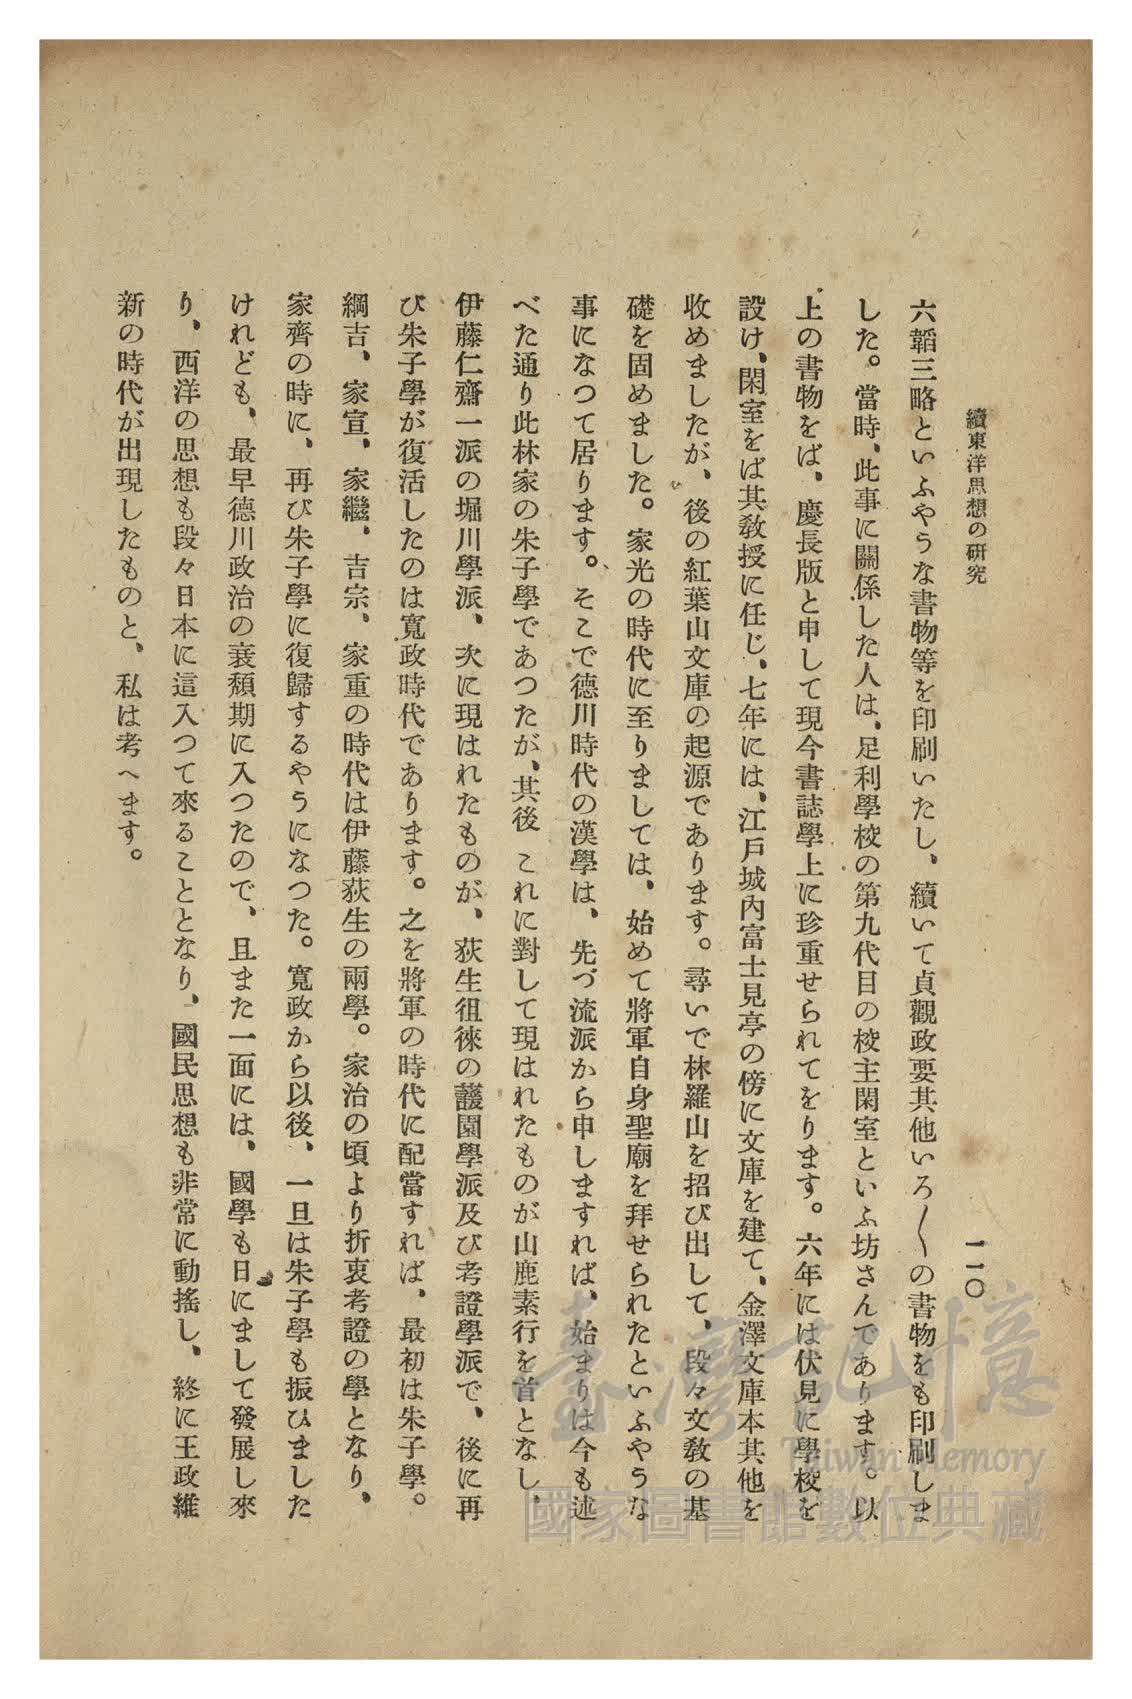 續東洋思想の研究
一一〇
六韜三略といふやうな書物等を印刷いたし、續いて貞觀政要其他いろ〱の書物をも印刷しま
した。當時、此事に關係した人は、足利學校の第九代目の校主閑室といふ坊さんであります。以
上の書物をば、慶長版と申して現今書誌學上に珍重せられてをります。六年には伏見に學校を
設け、閑室をば其敎授に任じ、七年には、江戸城內富士見亭の傍に文庫を建て、金澤文庫本其他を
收めましたが、後の紅葉山文庫の起源であります。尋いで林羅山を招び出して、段々文敎の基
礎を固めました。家光の時代に至りましては、始めて將軍自身聖廟を拜せられたといふやうな
事になつて居ります。そこで德川時代の漢學は、先づ流派から申しますれば、始まりは今も述
べた通り此林家の朱子學であつたが、其後これに對して現はれたものが山鹿素行を首となし、
伊藤仁齋一派の堀川學派、次に現はれたものが、荻生徂徠の蘐園學派及び考證學派で、後に再
び朱子學が復活したのは寬政時代であります。之を將軍の時代に配當すれば、最初は朱子學。
綱吉、家宣、家繼、吉宗、家重の時代は伊藤荻生の兩學。家治の頃より折衷考證の學となり、
家齊の時に、再び朱子學に復歸するやうになつた。寬政から以後、一旦は朱子學も振ひました
けれども、最早德川政治の衰頽期に入つたので、且また一面には、國學も日にまして發展し來
り、西洋の思想も段々日本に這入つて來ることとなり、國民思想も非常に動搖し、終に王政維
新の時代が出現したものと、私は考へます。
臺灣記憶
Taiwan Memory
國家圖書館數位典藏